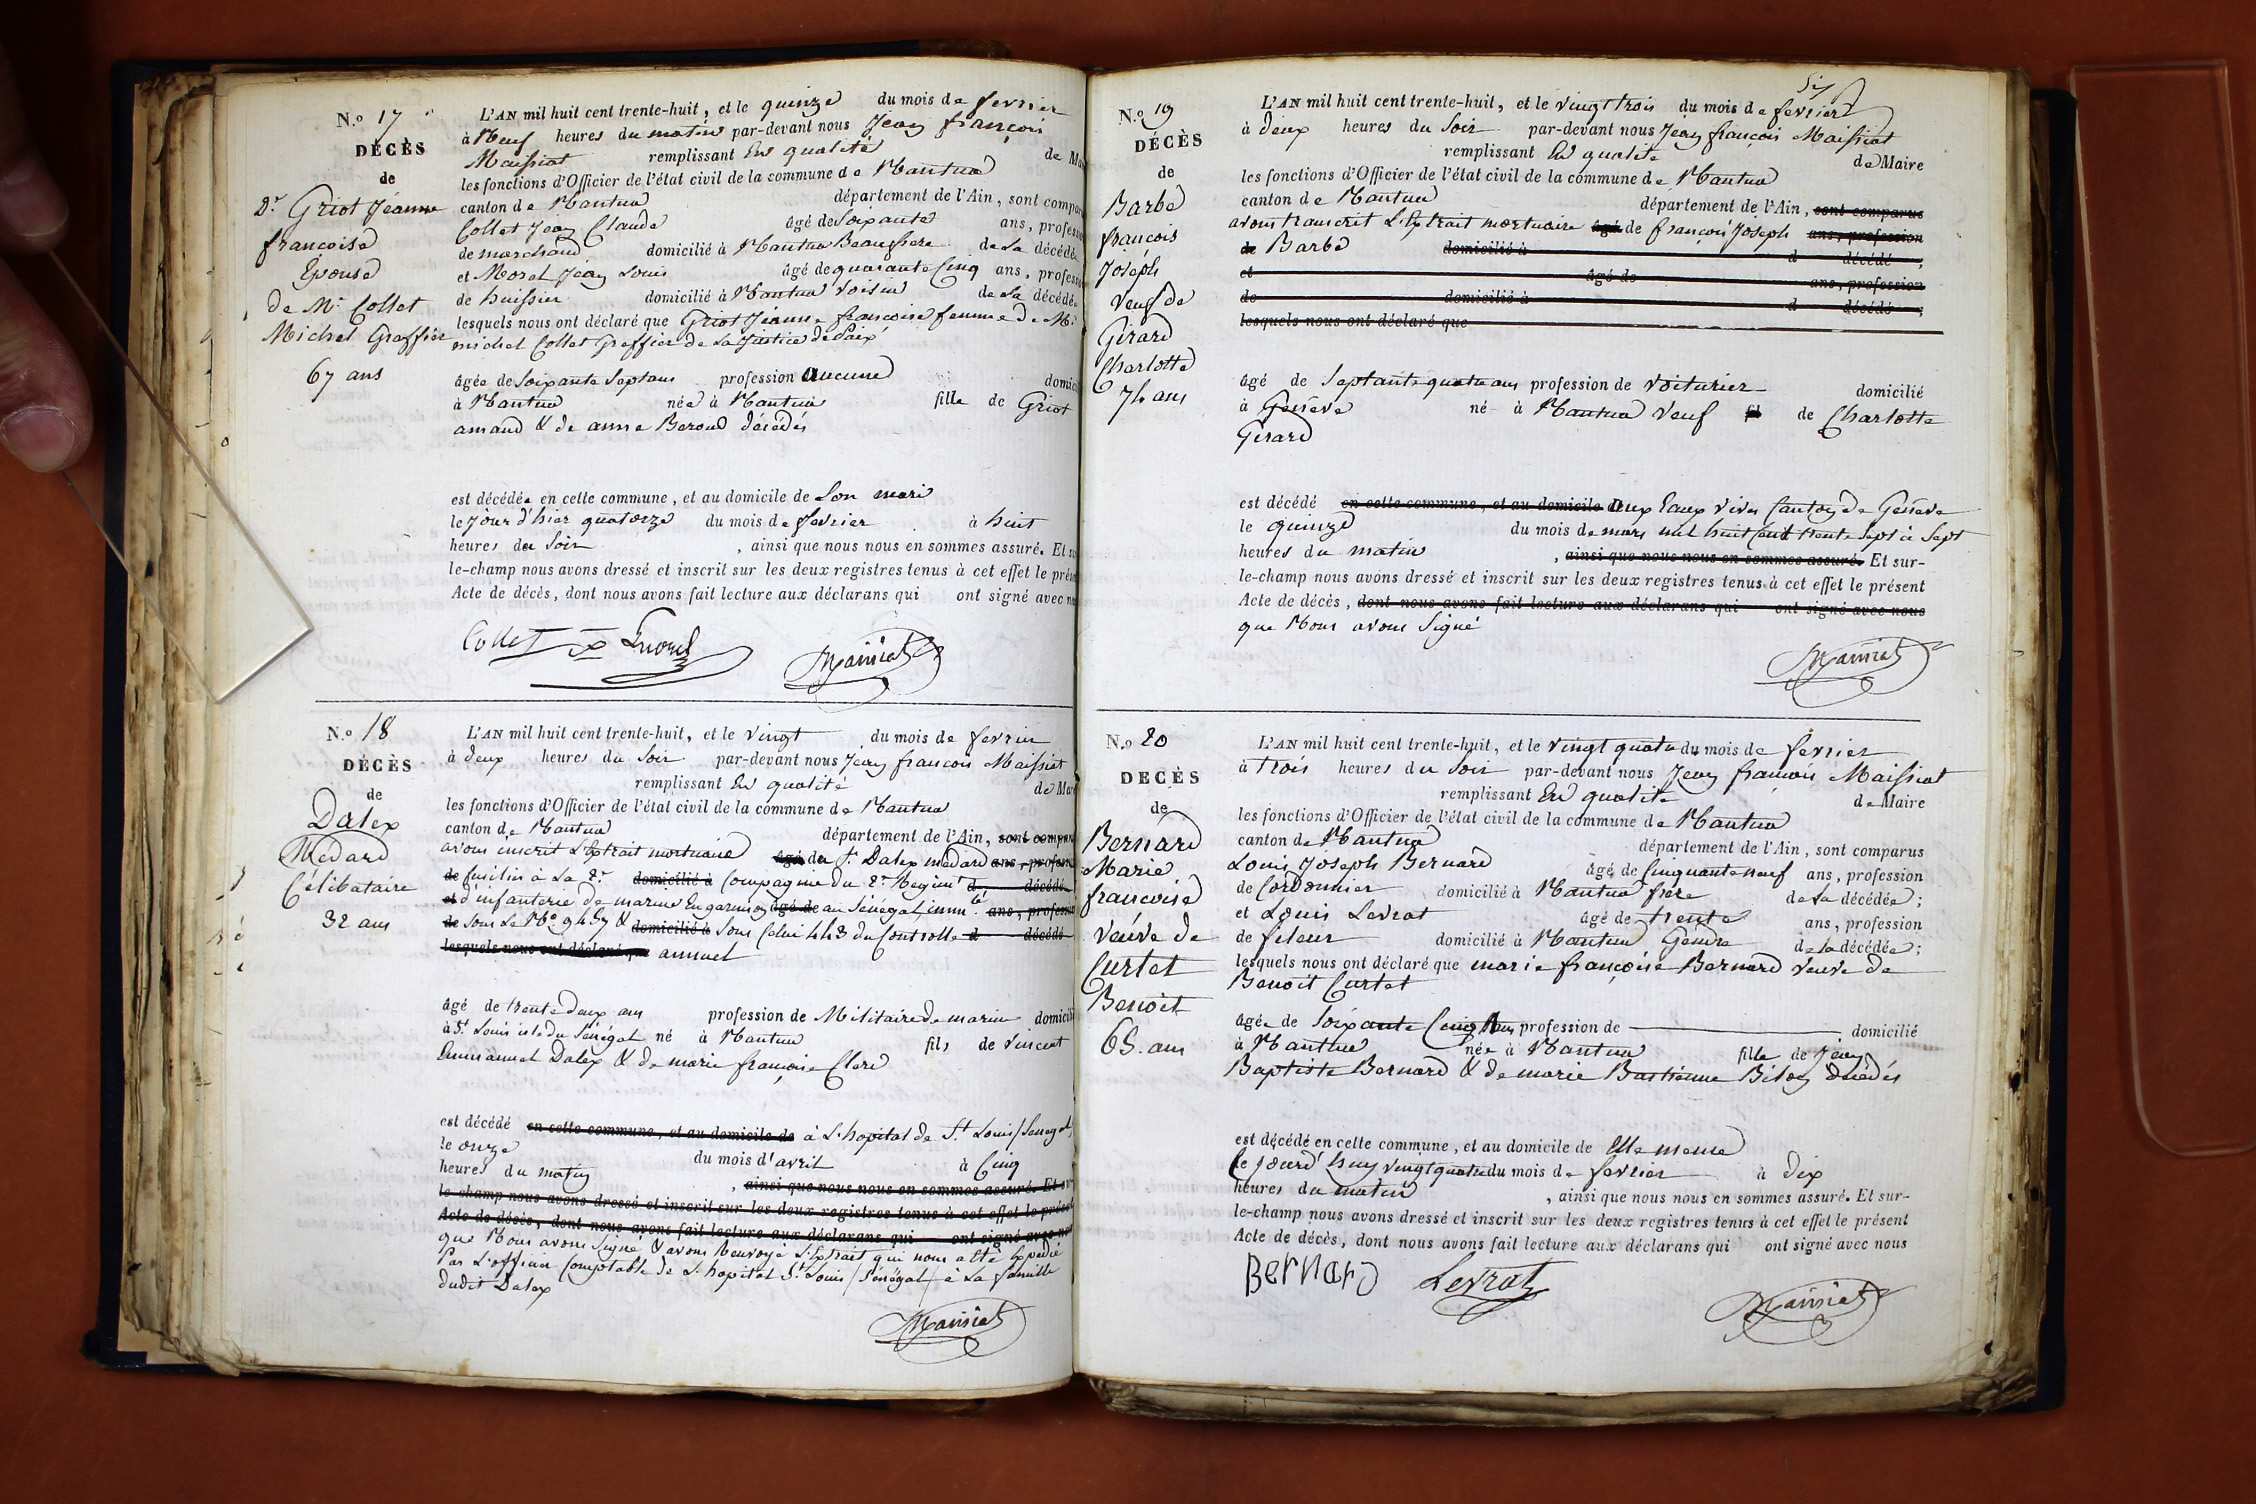 N.o 17
DÉCÈS
de
De Griot Jéanne
francoise
Epouse
de Mr Collet
Michel Greffier
67 ans
L'AN mil huit cent trente-huit, et le quinze du mois de fevrier
à Neuf heures du matin par-devant nous Jean françois
Maissiat remplissant En qualité de Ma
les fonctions d'Officier de l'état civil de la commune de Nantua
canton de Nantua département de l'Ain, sont compar
Collet Jean Claude âgé de Soixante ans, profess
de marchand domicilié à Nantua Beaufrere de La décédée
et Morel Jean Louis âgé de quarante Cinq ans, profess
de huissier domicilié à Nantua Voisin de La décédée
lesquels nous ont déclaré que Griot Jéanne francoise femme de Mr
michel Collet Greffier de La Justice de Paix
âgée de Soixante Sept ans profession aucune domici
à Nantua née à Nantua fille de Griot
amand & de anne Beroud décédés
est décédée en cette commune, et au domicile de Son mari
le Jour d'hier quatorze du mois de fevrier à huit
heures du Soir, ainsi que nous nous en sommes assuré. Et su
le-champ nous avons dressé et inscrit sur les deux registres tenus à cet effet le prése
Acte de décès, dont nous avons fait lecture aux déclarans qui ont signé avec no
Collet Morel Maissiat
N.o 18
DÉCÈS
de
Dalex
Médard
Célibataire
32 ans
L'AN mil huit cent trente-huit, et le vingt du mois de fevrier
à deux heures du Soir par-devant nous Jean francois Maissiat
remplissant En qualité de Mair
les fonctions d'Officier de l'état civil de la commune de Nantua
canton de Nantua département de l'Ain, sont compar
avons inscrit L'Extrait mortuaire âgé de du Sr Dalex médard ans, profess
de fusilier à La 2e domicilié à Compagnie du 2e Regimt d décédé
et d'infanterie de marine En garnison âgé de au Sénégal immlé ans, profess
de Sous Le No 9457 & domicilié à Sous Celui 443 du Controlle d décédé
lesquels nous ont déclaré que annuel
âgé de trente deux ans profession de Militaire de marine domicili
à St Louis isle du Sénégal né à Nantua fils de Vincent
Emmanuel Dalex & de marie françoise Clerc
est décédé en cette commune, et au domicile de à L'hopital de St Louis /Senegal/
le onze du mois d'avril à Cinq
heures du matin, ainsi que nous nous en sommes assuré. Et sur
le-champ nous avons dressé et inscrit sur les deux registres tenus à cet effet le prése
Acte de décès, dont nous avons fait lecture aux déclarans qui ont signé avec no
que Nous avons Signé & avons Renvoyé L'Extrait qui nous a Eté Expédié
Par L'officier Comptable de L'hopital St Louis /Sénégal/ à La famille
dudit Dalex
Maissiat
57
N.o 19
DÉCÈS
de
Barbe
françois
Joséph
Veuf de
Girard
Charlotte
74 ans
L'AN mil huit cent trente-huit, et le vingt trois du mois de fevrier
à deux heures du Soir par-devant nous Jean françois Maissiat
remplissant En qualité de Maire
les fonctions d'Officier de l'état civil de la commune de Nantua
canton de Nantua département de l'Ain, sont comparus
avons transcrit L'Extrait mortuaire âgé de françois Joseph ans, profession
de Barbe domicilié à d décédé ;
et âgé de ans, profession
de domicilié à d décédé ;
lesquels nous ont déclaré que
âgé de Septante quatre ans profession de Voiturier domicilié
à Genève né à Nantua Veuf fil de Charlotte
Girard
est décédé en cette commune, et au domicile aux Eaux Vives Canton de Genève
le quinze du mois de mars mil huit Cent trente Sept à Sept
heures du matin, ainsi que nous nous en sommes assuré. Et sur-
le-champ nous avons dressé et inscrit sur les deux registres tenus à cet effet le présent
Acte de décès, dont nous avons fait lecture aux déclarans qui ont signé avec nous
que Nous avons Signé
Maissiat
N.o 20
DÉCÈS
de
Bernard
Marie
francoise
Véuve de
Curtet
Benoit
65 ans
L'AN mil huit cent trente-huit, et le Vingt quatre du mois de fevrier
à trois heures du Soir par-devant nous Jean françois Maissiat
remplissant En qualité de Maire
les fonctions d'Officier de l'état civil de la commune de Nantua
canton de Nantua département de l'Ain, sont comparus
Louis Joseph Bernard âgé de Cinquante neuf ans, profession
de Cordonnier domicilié à Nantua frere de La décédée ;
et Louis Levrat âgé de trente ans, profession
de fileur domicilié à Nantua Gendre de La décédée ;
lesquels nous ont déclaré que marie françoise Bernard veuve de
Benoit Curtet
âgée de Soixante Cinq Ans profession de domicilié
à Nantua née à Nantua fille de Jean
Baptiste Bernard & de marie Bastienne Biloz décédés
est décédé en cette commune, et au domicile de Elle meme
Le Jourd'huy vingt quatre du mois de fevrier à dix
heures du matin, ainsi que nous nous en sommes assuré. Et sur-
le-champ nous avons dressé et inscrit sur les deux registres tenus à cet effet le présent
Acte de décès, dont nous avons fait lecture aux déclarans qui ont signé avec nous
Bernard Levrat Maissiat